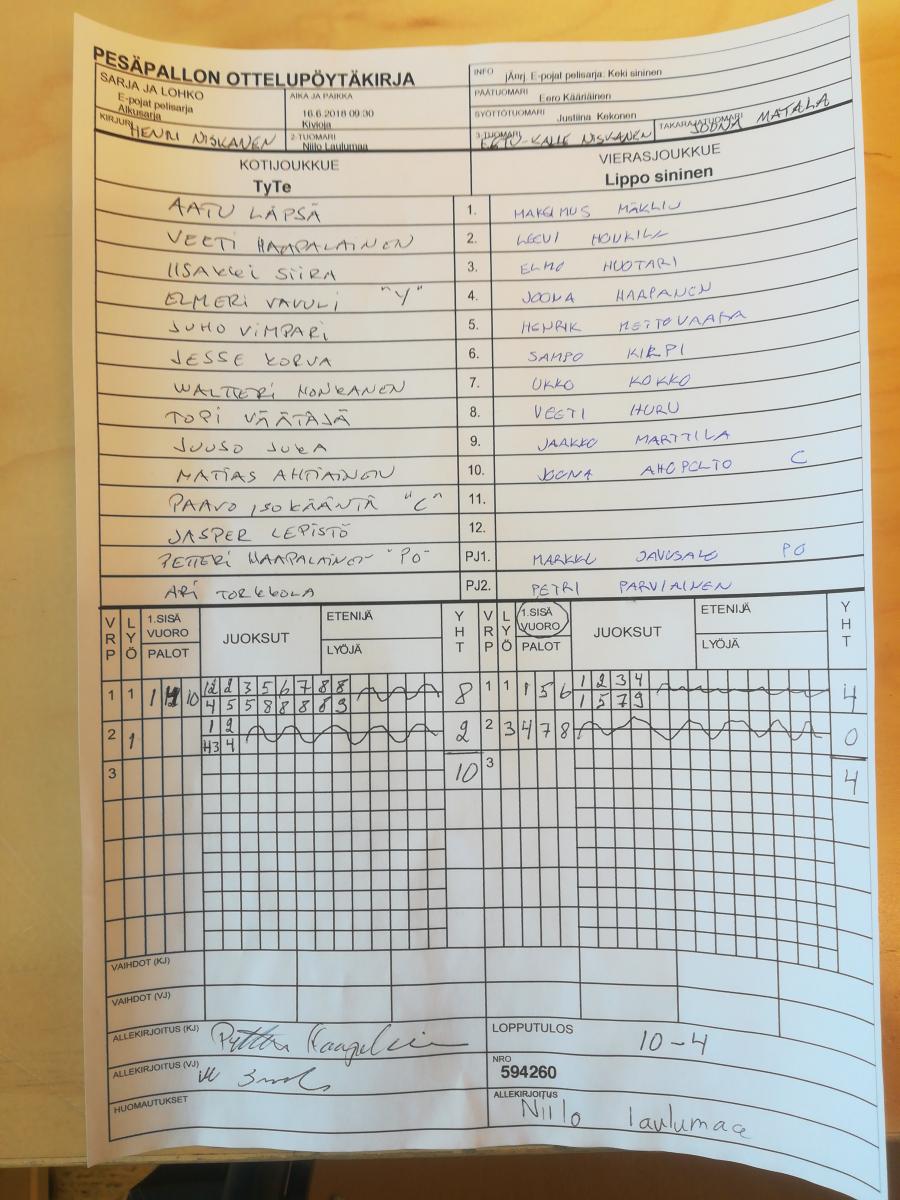 PESÄPALLON OTTELUPÖYTÄKIRJA
SARJA JA LOHKO
E-pojat pelisarja
Alkusarja
AIKA JA PAIKKA
16.6.2018 09:30
Kivioja
INFO jÄurj. E-pojat pelisarja: Keki sininen
PÄÄTUOMARI Eero Kääriäinen
SYÖTTÖTUOMARI Justiina Kekonen
KIRJURI HENRI NISKANEN
2-TUOMARI
Niilo Laulumaa
3-TUOMARI EETU-KALLE NISKANEN
TAKARAJATUOMARI JOONA MATALA
KOTIJOUKKUE
TyTe
VIERASJOUKKUE
Lippo sininen
AATU LÄPSÄ 1. MAKSIMUS
VEETI HAAPALAINEN 2. LEEVI
IISAKKI SIIRA 3. ELMO HUOTARI
ELMERI VAVULI "Y" 4. JOONA HAAPANEN
JUHO VIMPARI 5. HENRIK METTOVAARA
JESSE KORVA 6. SAMPO KIRPI
WALTTERI HONKANEN 7. UKKO KOKKO
TOPI VÄÄTÄJÄ 8. VEETI HURU
JUUSO JUKA 9. JAAKKO MARTTILA
MATIAS AHTIAINEN 10. JOONA AHOPELTO C
PAAVO ISOKÄÄNTÄ "C" 11.
JASPER LEPISTÖ 12.
PETTERI HAAPALAINEN "PO" PJ1. MARKKU JAVUSALO PO
ARI TORKKOLA PJ2. PETRI PARVIAINEN
VRP LYÖ 1.SISÄ VUORO PALOT JUOKSUT ETENIJÄ LYÖJÄ YHT VRP LYÖ 1.SISÄ VUORO PALOT JUOKSUT ETENIJÄ LYÖJÄ YHT
1 1 1 10 2 3 5 6 7 8 8 8 1 1 1 5 6 1 2 3 4 4
4 5 5 8 8 8 8 9 1 5 7 9
2 1 1 2 2 2 3 4 7 8 0
4
3 10 3 4
VAIHDOT (KJ)
VAIHDOT (VJ)
ALLEKIRJOITUS (KJ)
LOPPUTULOS 10-4
ALLEKIRJOITUS (VJ)
NRO
594260
HUOMAUTUKSET
ALLEKIRJOITUS
Niilo Laulumaa